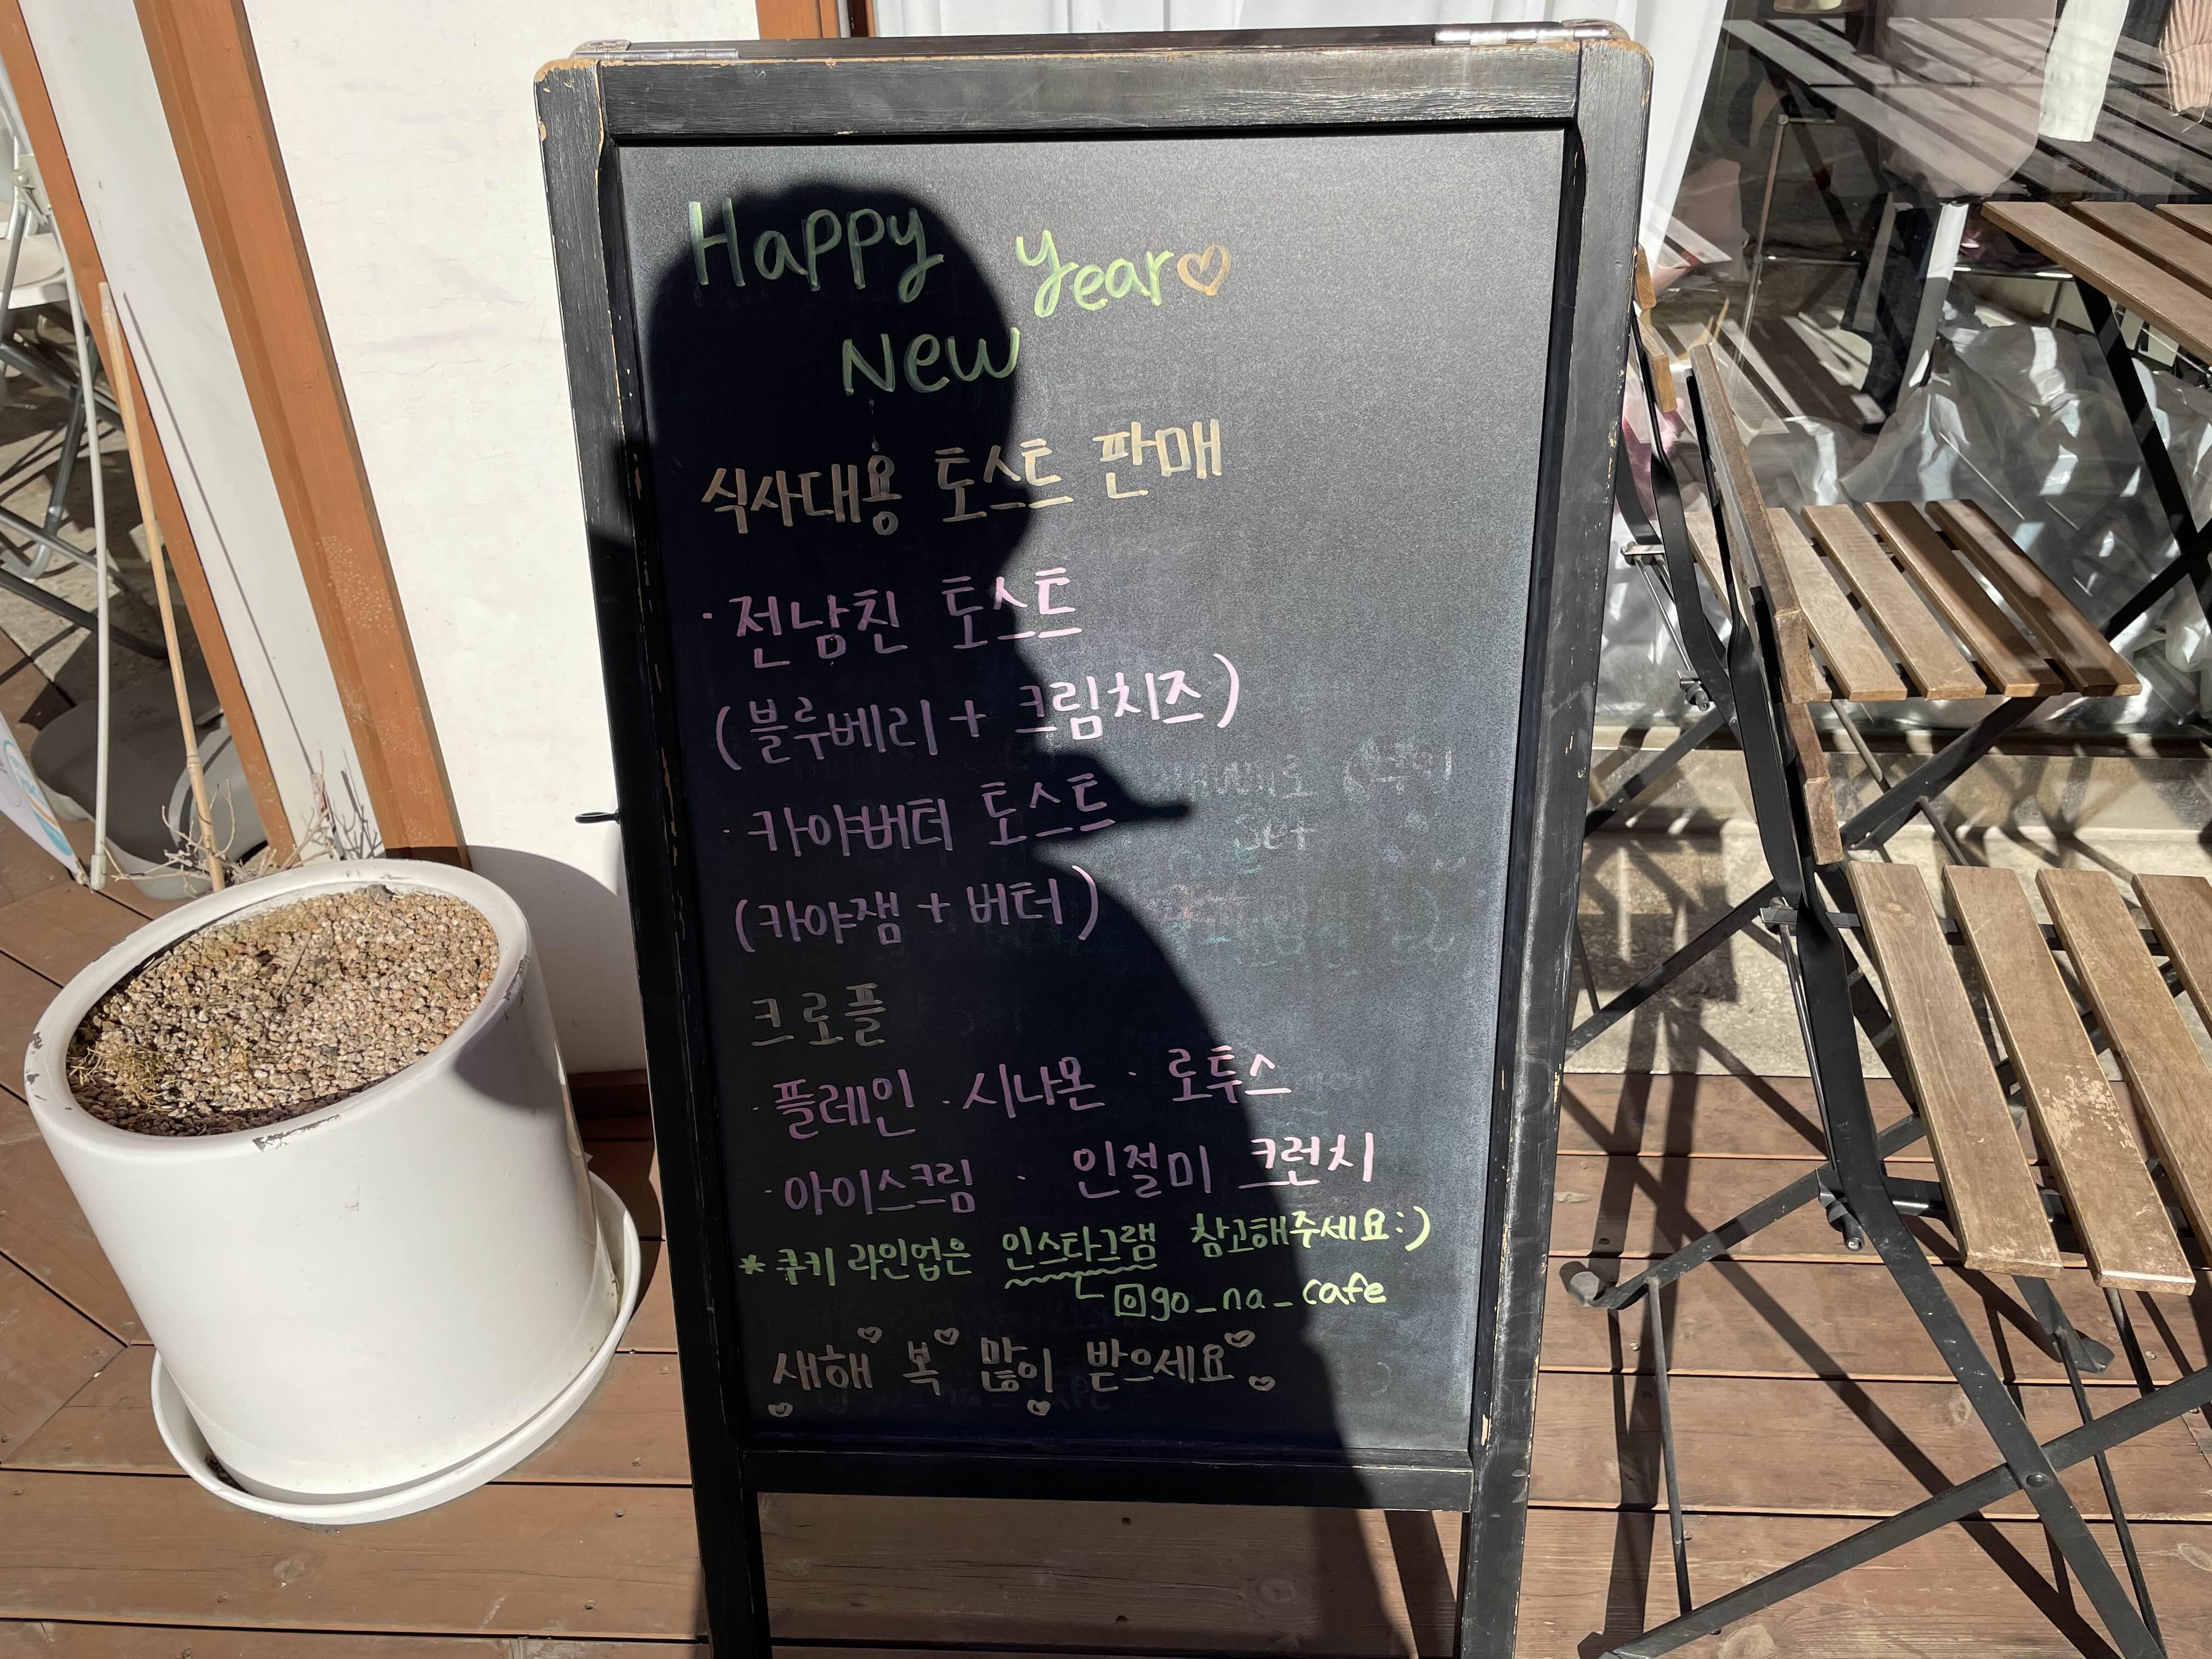 Happy Year♡
New
식사대용 토스트 판매
· 전남친 토스트
(블루베리 + 크림치즈)
· 카야버터 토스트
(카야잼 + 버터)
크로플
· 플레인 · 시나몬 · 로투스
· 아이스크림 · 인절미 크런치
* 쿠키 라인업은 인스타그램 참고해주세요:)
go_na_cafe
새해 복 많이 받으세요